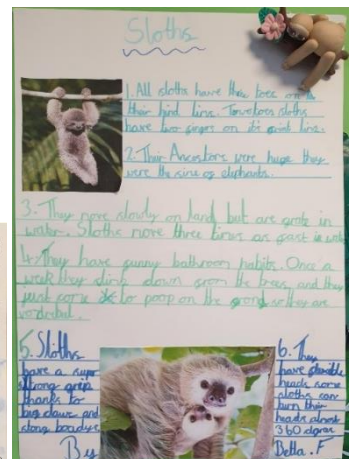 Sloths
1. All sloths have three toes on
their hind lins. Towtoes sloths
have two finges on it's
2. Thir Ancestors were huge they
were the size of elephants.
3. They move slowly on land, but are grate in
water. Sloths move three times as fast in
4. They have funny bathroom habits. Once a
week they climb down from the trees, and they
just to poop on the so they are
5. Sloths
have a super
strong grip
thanks to
big claws and
stong
By
6. They
have flexible
heads some
sloths can
turn thir
heads almost
360
Della . F